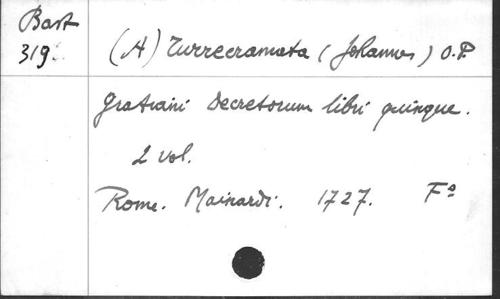 Bast
319
(A) Turrecramata (Johannes) O.P.
Gratiani Decretorum libri quinque.
2 vol.
Rome. Mainardi. 1727. Fº